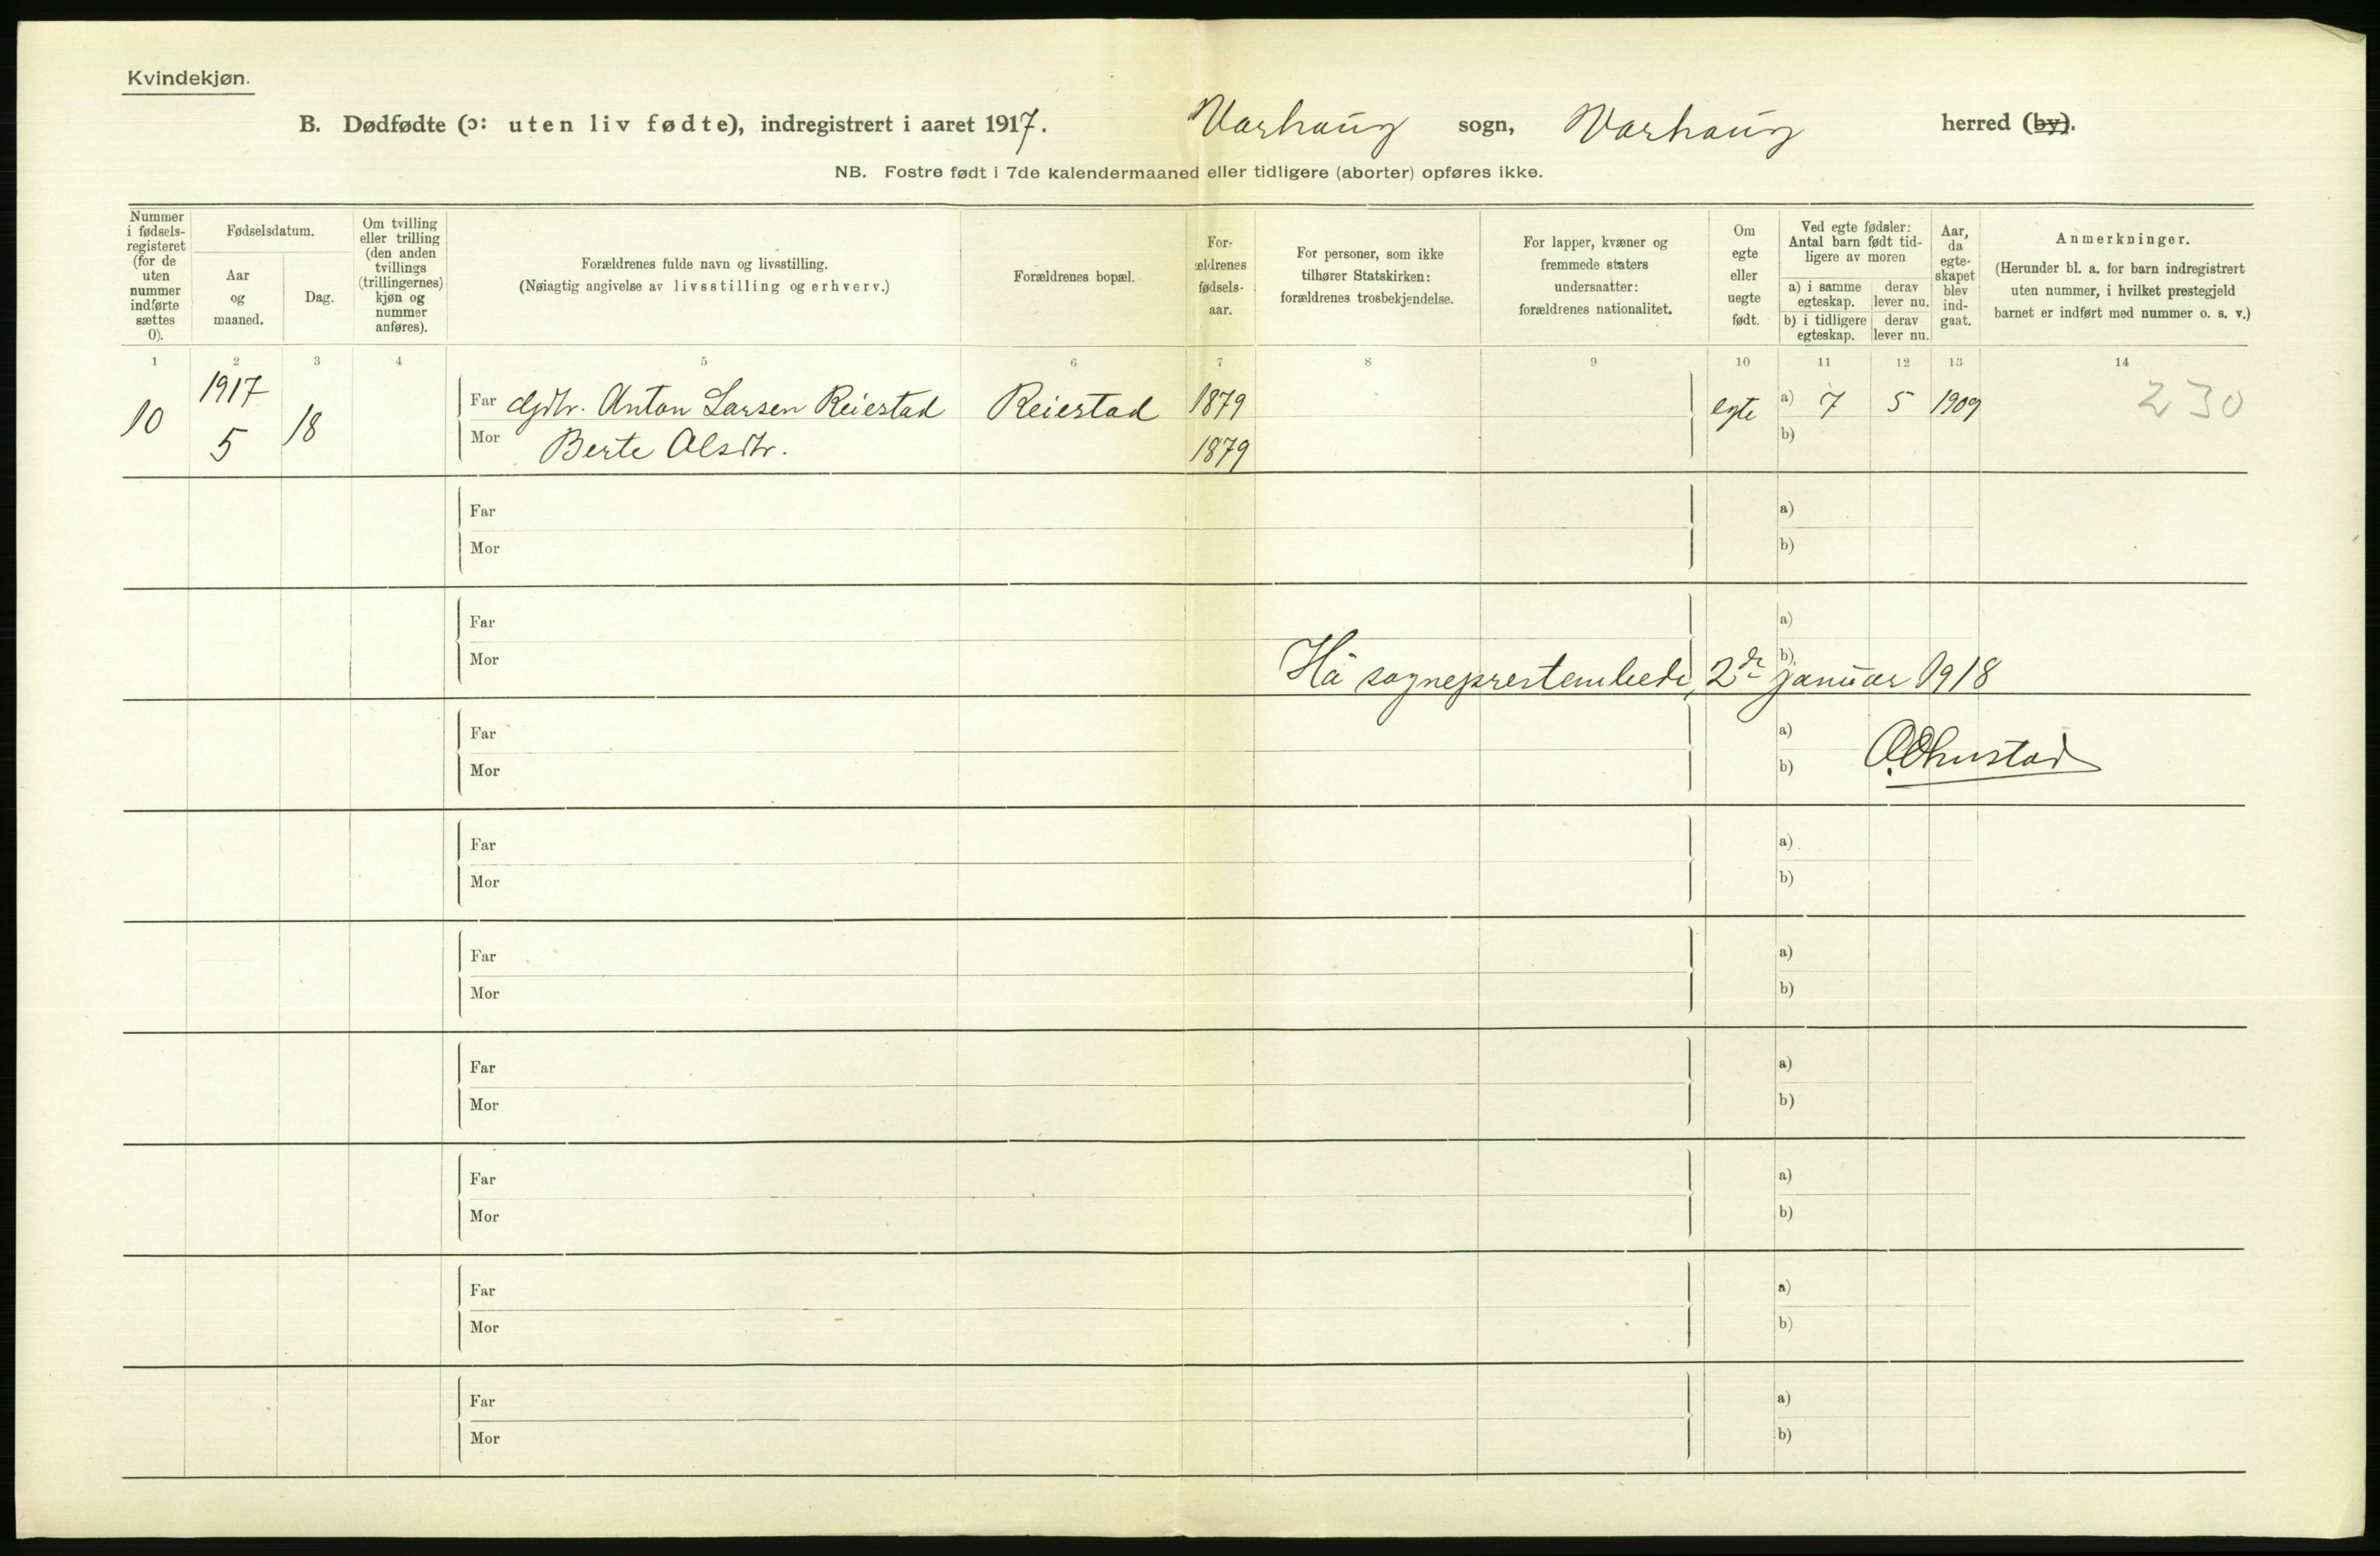 Kvindekjøn.
B. Dødfødte (ɔ: uten liv fødte), indregistrert i aaret 1917. Varhaug sogn, Varhaug herred (by).
NB. Fostre født i 7de kalendermaaned eller tidligere (aborter) opføres ikke.
Nummer
i fødsels-
registeret
(for de
uten
nummer
indførte
sættes
0).
Fødselsdatum.
Aar
og
maaned.
Dag.
Om tvilling
eller trilling
(den anden
tvillings
(trillingernes)
kjøn og
nummer
anføres).
Forældrenes fulde navn og livsstilling.
(Nøiagtig angivelse av livsstilling og erhverv.)
Forældrenes bopæl.
For-
ældrenes
fødsels-
aar.
For personer, som ikke
tilhører Statskirken:
forældrenes trosbekjendelse.
For lapper, kvæner og
fremmede staters
undersaatter:
forældrenes nationalitet.
Om
egte
eller
uegte
født.
Ved egte fødsler:
Antal barn født tid-
ligere av moren
a) i samme
egteskap.
derav
lever nu.
b) i tidligere
egteskap.
derav
lever nu.
Aar,
da
egte-
skapet
blev
ind-
gaat.
Anmerkninger.
(Herunder bl. a. for barn indregistrert
uten nummer, i hvilket prestegjeld
barnet er indført med nummer o. s. v.)
1 2 3 4 5 6 7 8 9 10 11 12 13 14
10 1917 5 18
Far Gdbr. Anton Larsen Reiestad Reiestad 1879 egte a) 7 5 1909 230
Mor Berte Olsdtr. 1879 b)
Far a)
Mor b)
Far a)
Mor b)
Hå sogneprestembede, 2de januar 1918
Far a)
Mor b)
Far a)
Mor b)
Far a)
Mor b)
Far a)
Mor b)
Far a)
Mor b)
Far a)
Mor b)
Far a)
Mor b)